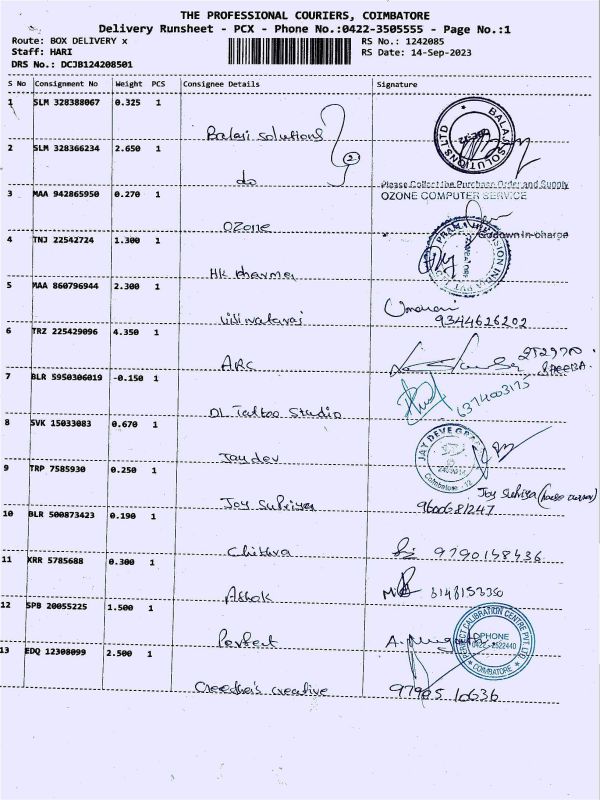 THE PROFESSIONAL COURIERS, COIMBATORE
Delivery Runsheet - PCX - Phone No.:0422-3505555 - Page No.:1
Route: BOX DELIVERY x RS No.: 1242085
Staff: HARI RS Date: 14-Sep-2023
DRS No.: DCJB124208501
S No Consignment No Weight PCS Consignee Details Signature
1 SLM 328388067 0.325 1 Balaji Solutions BALAJI SOLUTIONS LTD
2 SLM 328366234 2.650 1 do 2
Please Collect the Purchase Order and Supply
OZONE COMPUTER SERVICE
3 MAA 942865950 0.270 1 Ozone
Godown In-charge
4 TNJ 22542724 1.300 1 HK Pharma
5 MAA 860796944 2.300 1 9344626202
6 TRZ 225429096 4.350 1 ARC
7 BLR 5950306019 -0.150 1 DL Tattoo Studio 6374003175
8 SVK 15033083 0.670 1 Jaydev JAY DEVE Coimbatore - 12
9 TRP 7585930 0.250 1 Joy Supriya Joy Supriya 9600681247
10 BLR 500873423 0.190 1 Chithra 9790148436
11 KRR 5785688 0.300 1 Ashok
12 SPB 20055225 1.500 1 Perfect PERFECT CALIBRATION CENTRE PVT. LTD PHONE 0422-2522440 COIMBATORE
13 EDQ 12308099 2.500 1 creative 97905 10636